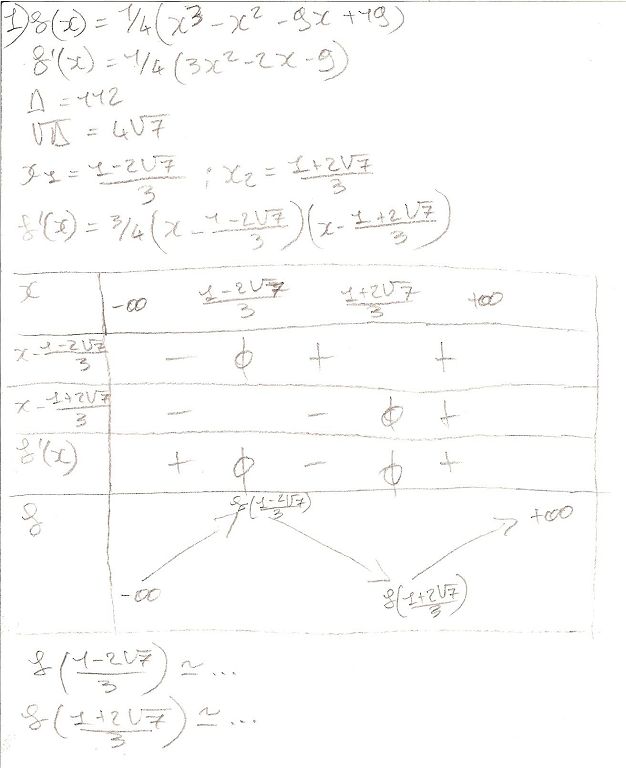 1) f(x) = 1/4 (x³ - x² - 9x + 19)
f'(x) = 1/4 (3x² - 2x - 9)
Δ = 112
√Δ = 4√7
x₁ = (1-2√7)/3 ; x₂ = (1+2√7)/3
f'(x) = 3/4 (x - (1-2√7)/3)(x - (1+2√7)/3)
x -∞ (1-2√7)/3 (1+2√7)/3 +∞
x - (1-2√7)/3 - 0 + +
x - (1+2√7)/3 - - 0 +
f'(x) + 0 - 0 +
f((1-2√7)/3)
f +∞
-∞ f((1+2√7)/3)
f((1-2√7)/3) ≃ ...
f((1+2√7)/3) ≃ ...